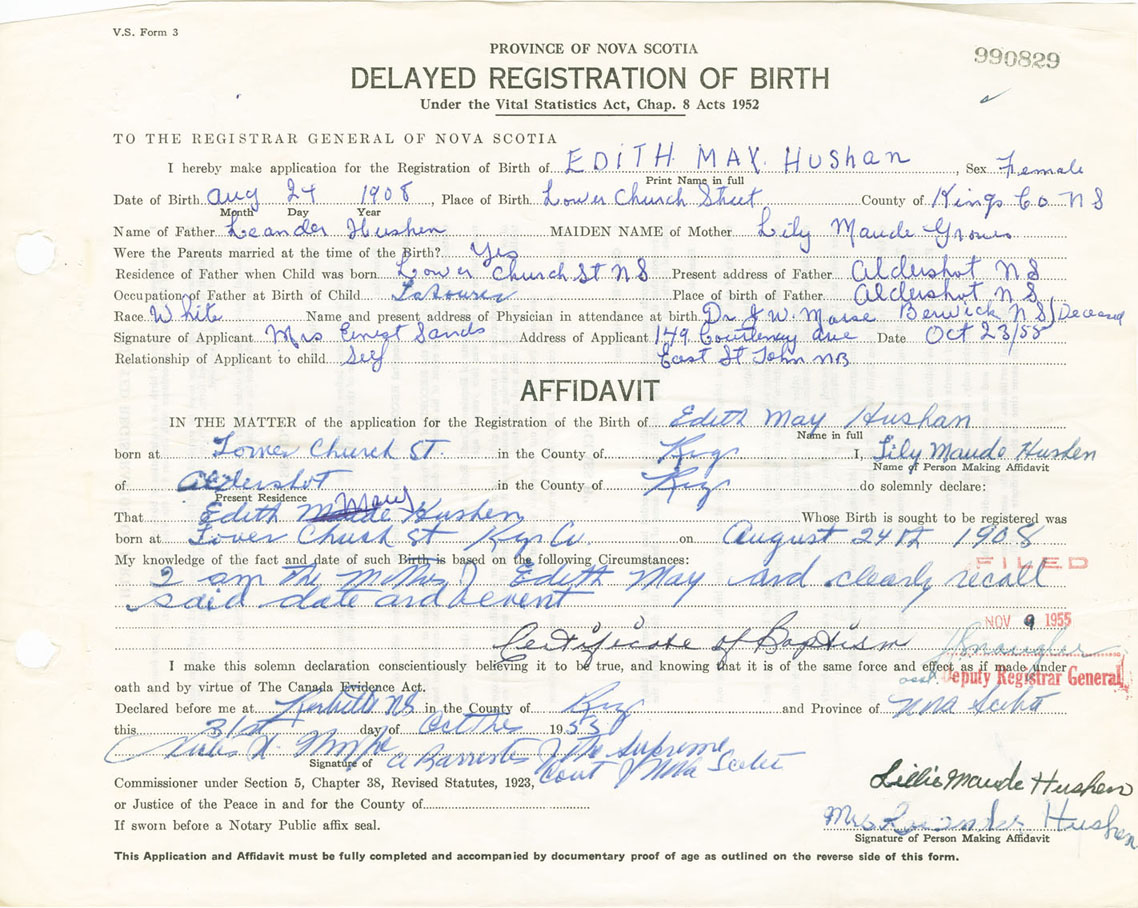 V.S. Form 3
PROVINCE OF NOVA SCOTIA
990829
DELAYED REGISTRATION OF BIRTH
Under the Vital Statistics Act, Chap. 8 Acts 1952
TO THE REGISTRAR GENERAL OF NOVA SCOTIA
I hereby make application for the Registration of Birth of EDITH MAY HUSHAN, Sex Female
Print Name in full
Date of Birth Aug 24 1908, Place of Birth Lower Church Street County of Kings Co NS
Month Day Year
Name of Father Leander Hushen MAIDEN NAME of Mother Lily Maude
Were the Parents married at the time of the Birth? Yes
Residence of Father when Child was born Lower Church St NS Present address of Father Aldershot NS
Occupation of Father at Birth of Child Labourer Place of birth of Father Aldershot NS
Race White Name and present address of Physician in attendance at birth Dr J W Morse Berwick NS) Deceased
Signature of Applicant Mrs Ernest Sands Address of Applicant 149 Courtenay ave Date Oct 23/55
Relationship of Applicant to child Self East St John NB
AFFIDAVIT
IN THE MATTER of the application for the Registration of the Birth of Edith May Hushan
Name in full
born at Lower Church ST. in the County of Kings I, Lily Maude Hushen
Name of Person Making Affidavit
of Aldershot in the County of Kings do solemnly declare:
Present Residence
That Edith May Hushen Whose Birth is sought to be registered was
born at Lower Church St Kings Co on August 24th 1908
My knowledge of the fact and date of such Birth is based on the following Circumstances:
I am the Mother of Edith May and clearly recall
FILED
said date and event
NOV 9 1955
Certificate of Baptism
I make this solemn declaration conscientiously believing it to be true, and knowing that it is of the same force and effect as if made under
oath and by virtue of The Canada Evidence Act.
asst. Deputy Registrar General
Declared before me at Kentville NS in the County of Kings and Province of Nova Scotia
this 31st day of October 1955
A Barrister of the Supreme
Signature of
Court of Nova Scotia
Commissioner under Section 5, Chapter 38, Revised Statutes, 1923,
Lillie Maude Hushen
or Justice of the Peace in and for the County of
Mrs Leander Hushen
If sworn before a Notary Public affix seal.
Signature of Person Making Affidavit
This Application and Affidavit must be fully completed and accompanied by documentary proof of age as outlined on the reverse side of this form.